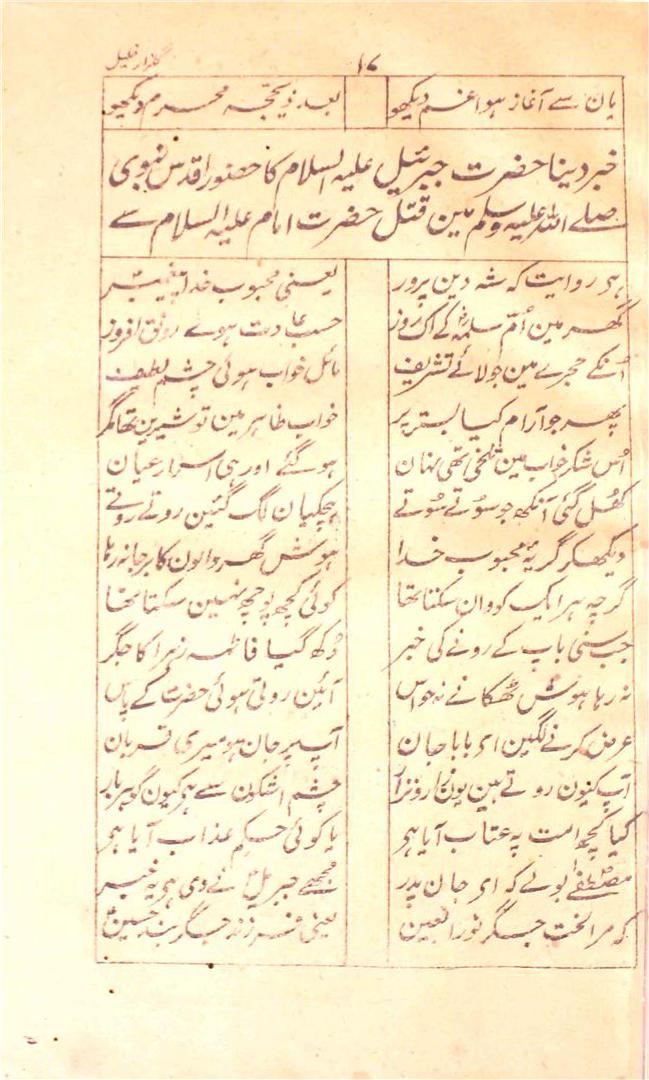 گلزار خلیل
۱۷
یان سے آغاز ہوا غم دیکھو بعد ذیحجہ محرم دیکھو
خبر دینا حضرت جبرئیل علیہ السلام کا حضور اقدس نبوی
صلے اللہ علیہ وسلم مین قتل حضرت امام علیہ السلام سے
ہی روایت کہ شہ دین پرور یعنی محبوب خدا پیغمبر
گھر مین اُمّ سلمہ کے اک روز حسب عادت ہوے رونق افروز
اُنکے حجرے مین جو لائے تشریف مائل خواب ہوئی چشم لطیف
پھر جو آرام کیا بستر پر خواب ظاہر مین تو شیرین تھا مگر
اُس شکر خواب مین تلخی تھی نہان ہو گئے اور ہی اسرار عیان
کھُل گئی آنکھ جو سوتے سوتے ہچکیان لگ گئین روتے روتے
دیکھکر گریۂ محبوب خدا ہوش گھر والون کا بر جا نہ رہا
گرچہ ہر ایک کو وان سکتا تھا کوئی کچھ پوچھ نہین سکتا تھا
جب سنی باپ کے رونے کی خبر دُکھ گیا فاطمہ زہرا کا جگر
نہ رہا ہوش ٹھکانے نہ حواس آئین روتی ہوئی حضرت کے پاس
عرض کرنے لگین ای بابا جان آپ پر جان ہو میری قربان
آپ کیون روتے ہین یون زار و نزار چشم اشکون سے ہو کیون گوہر بار
کیا کچھ امت پہ عتاب آیا ہو یا کوئی حکم عذاب آیا ہو
مصطفےٰ بولے کہ ای جان پدر مجھے جبریل نے دی ہو یہ خبر
کہ مرا لخت جگر نور العین یعنی فرزند جگر بند حسین